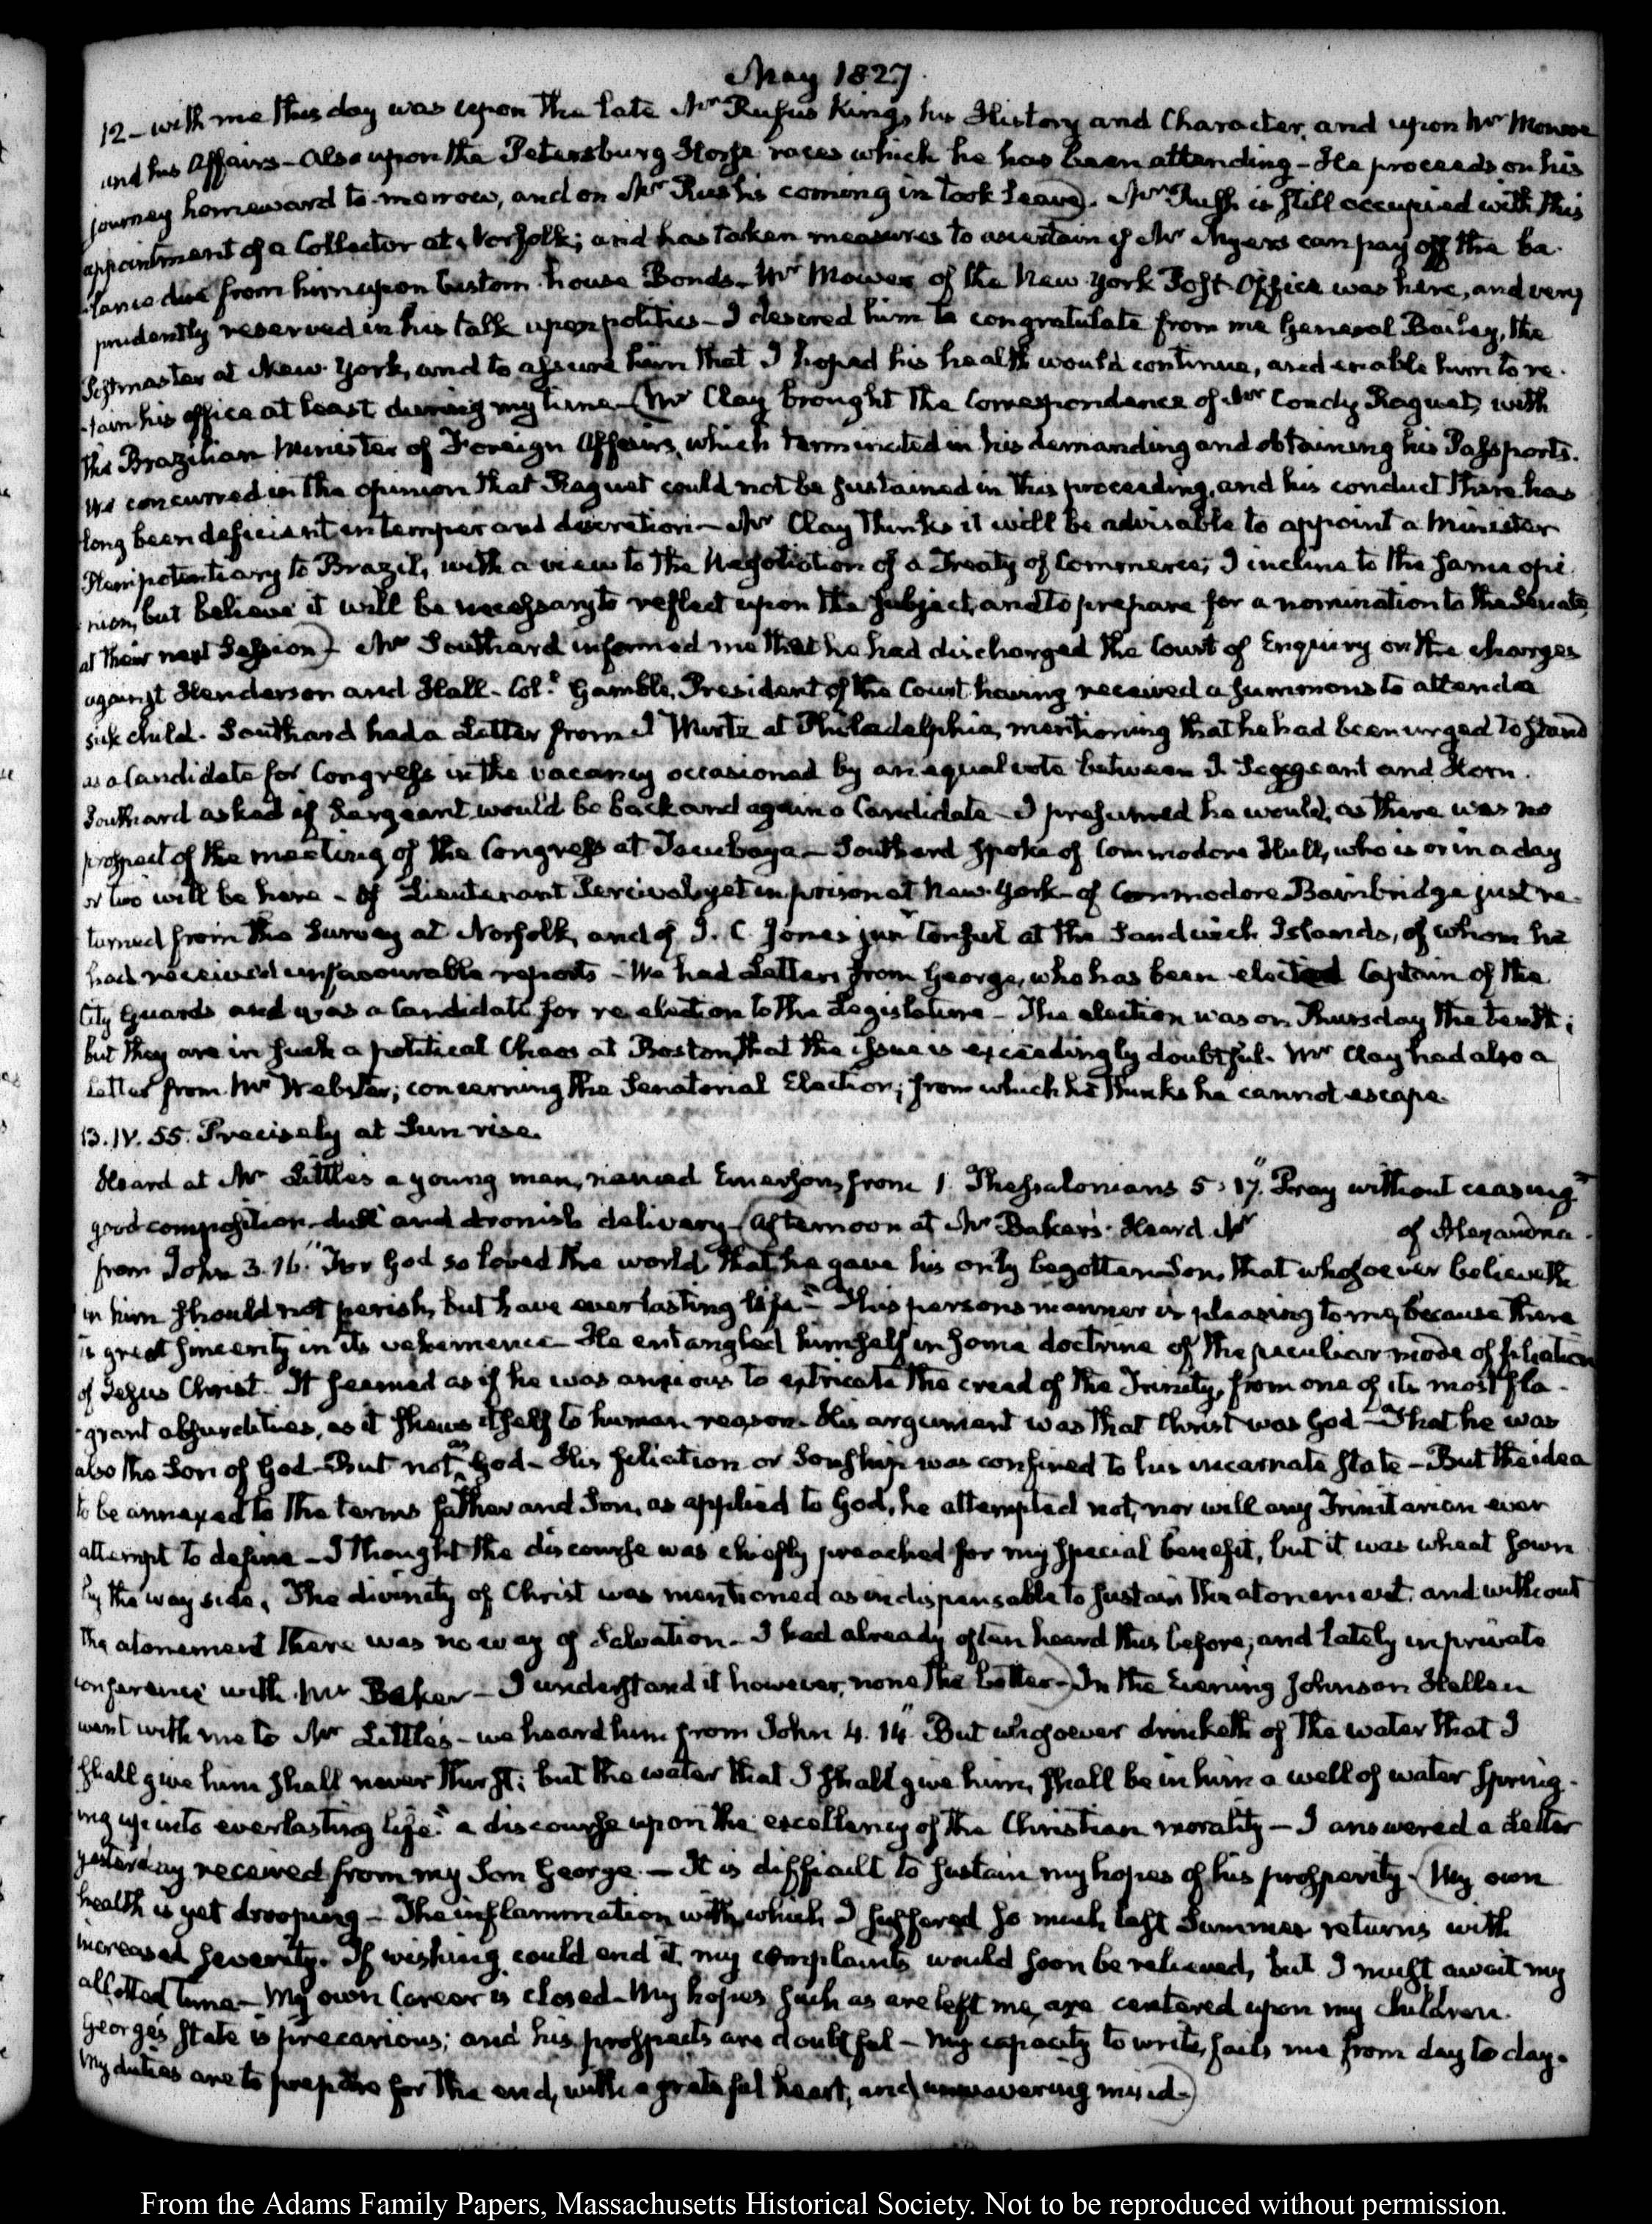 May 1827.
12 – with me this day was upon the late Mr Rufus King, his History and Character, and upon Mr Monroe
and his Affairs – Also upon the Petersburg Horse races which he has been attending – He proceeds on his
journey homeward to-morrow, and on Mr Rush's coming in took leave). Mr Rush is still occupied with this
appointment of a Collector at Norfolk; and has taken measures to ascertain if Mr Myers can pay off the ba-
-lance due from him upon Custom-house Bonds – Mr Mower of the New York Post Office was here, and very
prudently reserved in his talk upon politics – I desired him to congratulate from me General Bailey, the
Postmaster at New-York, and to assure him that I hoped his health would continue, and enable him to re-
-tain his office at least during my time – (Mr Clay brought the Correspondence of Mr Condy Raguet, with
the Brazilian Minister of Foreign Affairs, which terminated in his demanding and obtaining his Passports.
We concurred in the opinion that Raguet could not be sustained in this proceeding, and his conduct there has
long been deficient in temper and discretion – Mr Clay thinks it will be advisable to appoint a Minister
Plenipotentiary to Brazil, with a view to the Negotiation of a Treaty of Commerce; I incline to the same opi-
-nion, but believe it will be necessary to reflect upon the subject, and to prepare for a nomination to the Senate,
at their next Session) – Mr Southard informed me that he had discharged the Court of Enquiry on the charges
against Henderson and Hall – Col.l Gamble, President of the Court having received a summons to attend a
sick child. Southard had a Letter from J Wurts at Philadelphia, mentioning that he had been urged to stand
as a Candidate for Congress in the vacancy occasioned by an equal vote between J. Sergeant and Horn.
Southard asked if Sargeant would be back and again a Candidate – I presumed he would, as there was no
prospect of the meeting of the Congress at Tacubaya – Southard spoke of Commodore Hull, who is or in a day
or two will be here – of Lieutenant Percival yet in prison at New-York – of Commodore Bainbridge just re-
turned from the Survey at Norfolk, and of J. C. Jones junr Consul at the Sandwich Islands, of whom he
had received unfavourable reports – We had Letters from George, who has been elected Captain of the
City Guards and was a Candidate for re-election to the Legislature – The election was on Thursday the tenth;
but they are in such a political Chaos at Boston, that the issue is exceedingly doubtful. Mr Clay had also a
Letter from Mr Webster; concerning the Senatorial Election; from which he thinks he cannot escape.
13. IV. 55. Precisely at Sun rise.
Heard at Mr Little's a young man, named Emerson, from 1. Thessalonians 5. 17. "Pray without ceasing"
good composition – dull and dronish delivery – (Afternoon at Mr Baker's. Heard Mr of Alexandria.
from John 3. 16. "For God so loved the world, that he gave his only begotten Son, that whosoever believeth
in him should not perish, but have everlasting life" – This persons manner is pleasing to me, because there
is great sincerity in its vehemence – He entangled himself in some doctrine of the peculiar mode of filiation
of Jesus Christ. It seemed as if he was anxious to extricate the creed of the Trinity, from one of its most fla-
-grant absurdities, as it shews itself to human reason. His argument was that Christ was God – That he was
also the Son of God – But not as God – His filiation or Sonship was confined to his incarnate state – But the idea
to be annexed to the terms father and Son, as applied to God, he attempted not, nor will any Trinitarian ever
attempt to define – I thought the discourse was chiefly preached for my special benefit, but it was wheat sown
by the way side. The divinity of Christ was mentioned as indispensable to sustain the atonement, and without
the atonement there was no way of Salvation – I had already often heard this before, and lately in private
conference with Mr Baker – I understand it however, none the better –) In the Evening Johnson Hellen
went with me to Mr Little's – we heard him from John 4. 14. "But whosoever drinketh of the water that I
shall give him shall never thirst; but the water that I shall give him, shall be in him a well of water spring-
ing up into everlasting life." a discourse upon the excellency of the Christian morality – I answered a Letter
yesterday received from my Son George – It is difficult to sustain my hopes of his prosperity – (My own
health is yet drooping – The inflammation with which I suffered so much last Summer returns with
increased severity. If wishing could end it, my complaints would soon be relieved, but I must await my
allotted time – My own Career is closed – My hopes, such as are left me, are centered upon my children.
George's state is precarious; and his prospects are doubtful – My capacity to write, fails me from day to day.
My duties are to prepare for the end, with a grateful heart, and unwavering mind –)
From the Adams Family Papers, Massachusetts Historical Society. Not to be reproduced without permission.